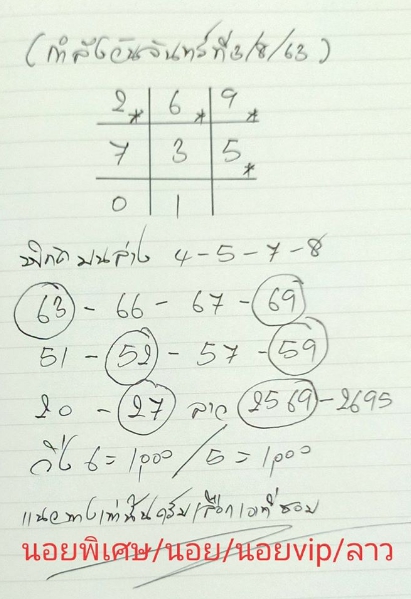 (กำลังวันจันทร์ที่3/8/63)
2* 6* 9*
7 3 5*
0 1
พิกัดบนล่าง 4-5-7-8
63 - 66 - 67 - 69
51 - 52 - 57 - 59
20 - 27 ลาว 2569 - 2695
วิ่ง 6 = 1,000 / 5 = 1,000
แนวทางเท่านั้นครับเลือกเอาที่ชอบ
นอยพิเศษ/นอย/นอยvip/ลาว